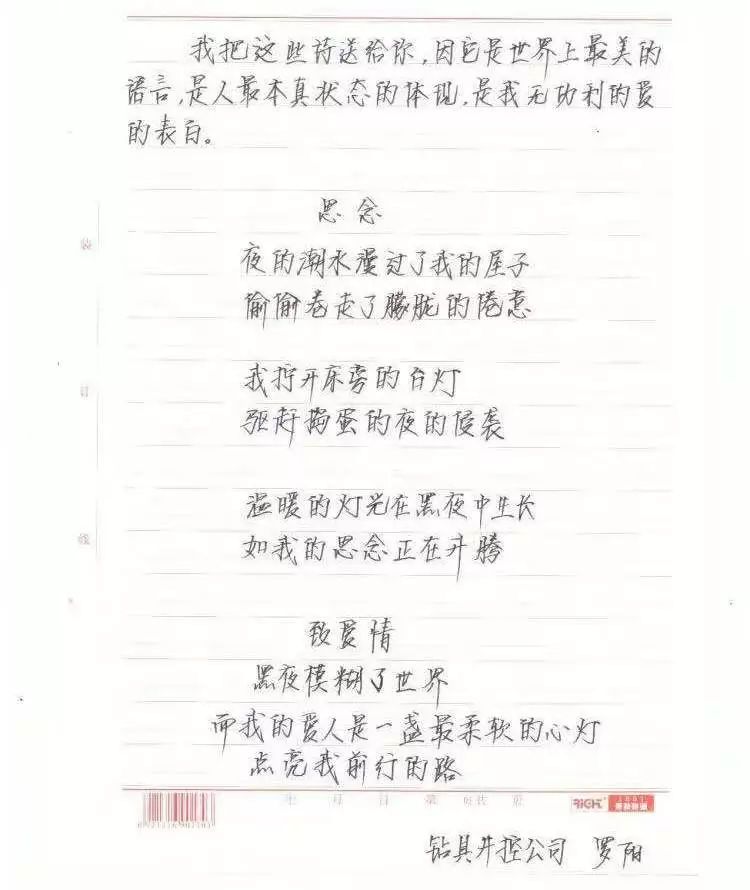 我把这些诗送给你,因它是世界上最美的
语言,是人最本真状态的体现,是我无功利的爱
的表白。
思念
夜的潮水漫过了我的屋子
偷偷卷走了朦胧的倦意
我拧开床旁的台灯
驱赶捣蛋的夜的侵袭
温暖的灯光在黑夜中生长
如我的思念正在升腾
致爱情
黑夜模糊了世界
而我的爱人是一盏最柔软的心灯
点亮我前行的路
装
订
线
年 月 日 第 页共 页
钻具井控公司 罗阳